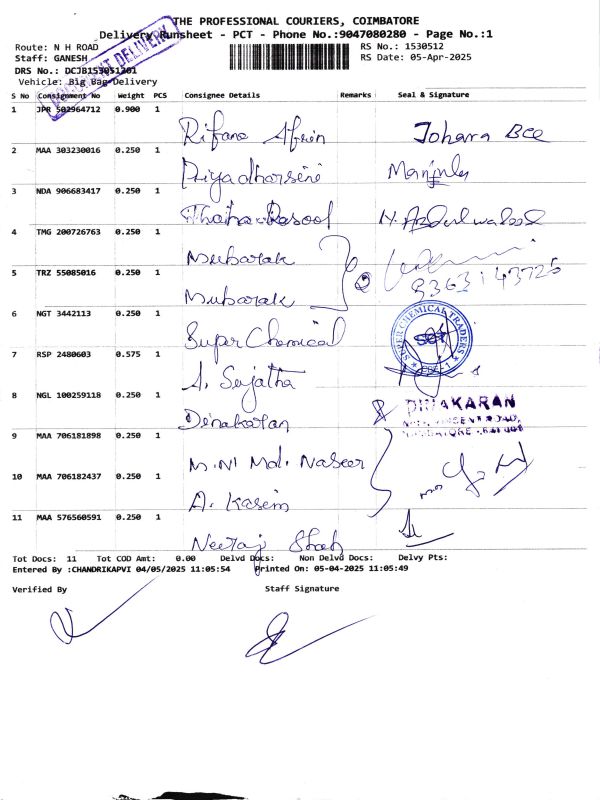 THE PROFESSIONAL COURIERS, COIMBATORE
Delivery Runsheet - PCT - Phone No.:9047080280 - Page No.:1
Route: N H ROAD RS No.: 1530512
Staff: GANESH RS Date: 05-Apr-2025
DRS No.: DCJB153051201
Vehicle: Big Bag Delivery
DOCUMENT DELIVERY
S No Consignment No Weight PCS Consignee Details Remarks Seal & Signature
1 JPR 502964712 0.900 1 Rifana Afrin Johara Bee
2 MAA 303230016 0.250 1 Priyadharsini Manjula
3 NDA 906683417 0.250 1 Thaha Rasool
4 TMG 200726763 0.250 1 Mubarak
5 TRZ 55085016 0.250 1 Mubarak 2 9363143726
6 NGT 3442113 0.250 1 Super Chemical SUPER CHEMICAL TRADERS
7 RSP 2480603 0.575 1 A. Sujatha
8 NGL 100259118 0.250 1 Dinakaran DINAKARAN
9 MAA 706181898 0.250 1 M.NI Md. Naseer
10 MAA 706182437 0.250 1 A. Kasim
11 MAA 576560591 0.250 1 Neeraj Shah
Tot Docs: 11 Tot COD Amt: 0.00 Delvd Docs: Non Delvd Docs: Delvy Pts:
Entered By :CHANDRIKAPVI 04/05/2025 11:05:54 Printed On: 05-04-2025 11:05:49
Verified By Staff Signature